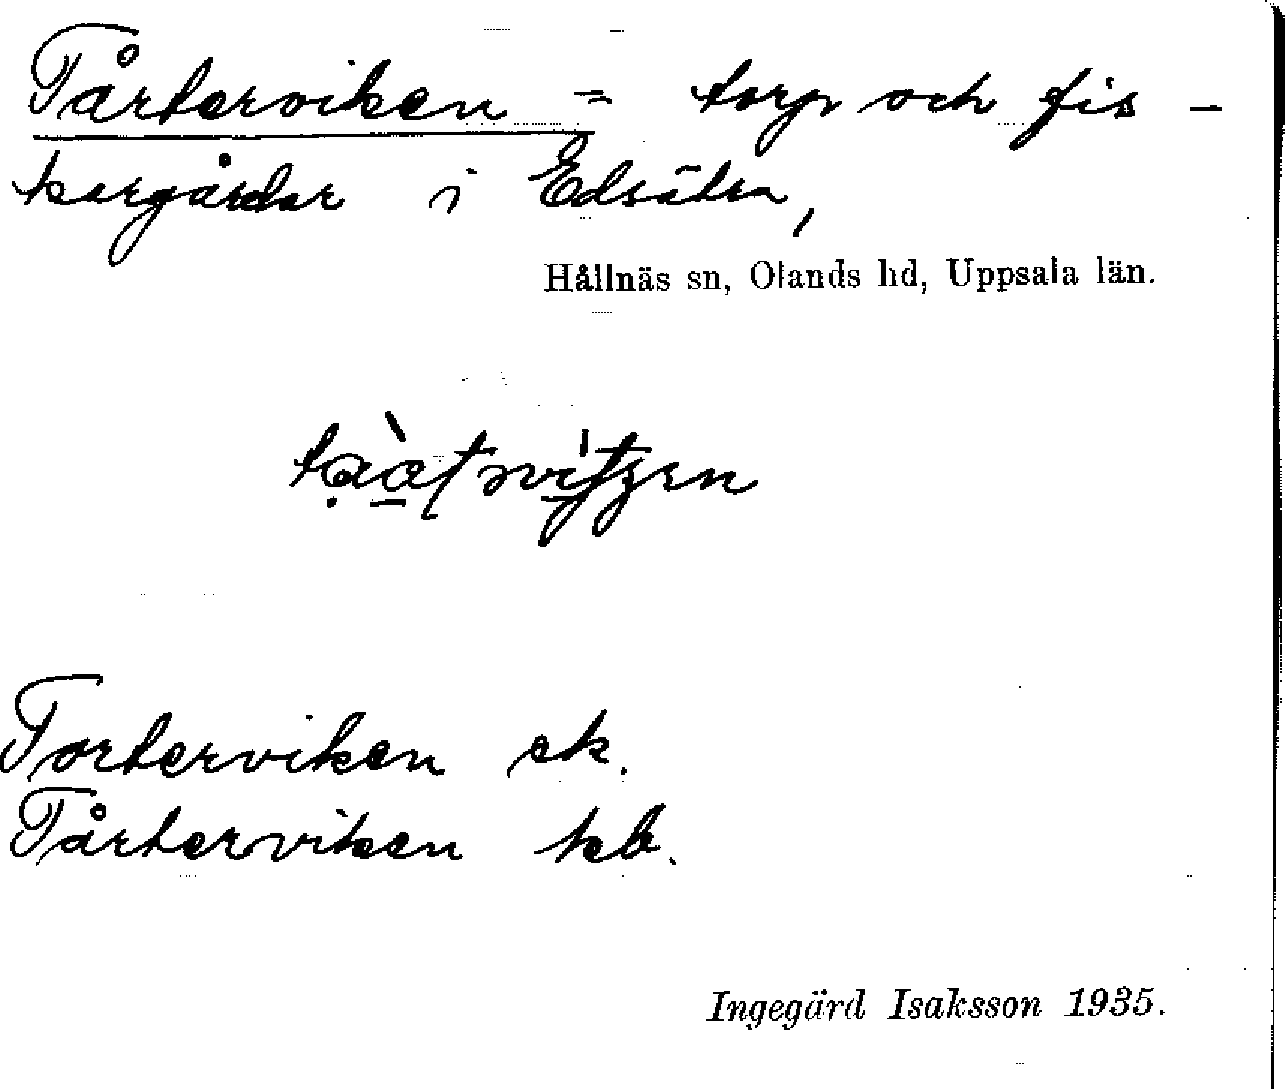 Tårterviken = torp och fis-
kargårdar i Edsätra,
Hållnäs sn, Olands hd, Uppsala län.
Torterviken ek.
Tårterviken kb.
Ingegärd Isaksson 1935.